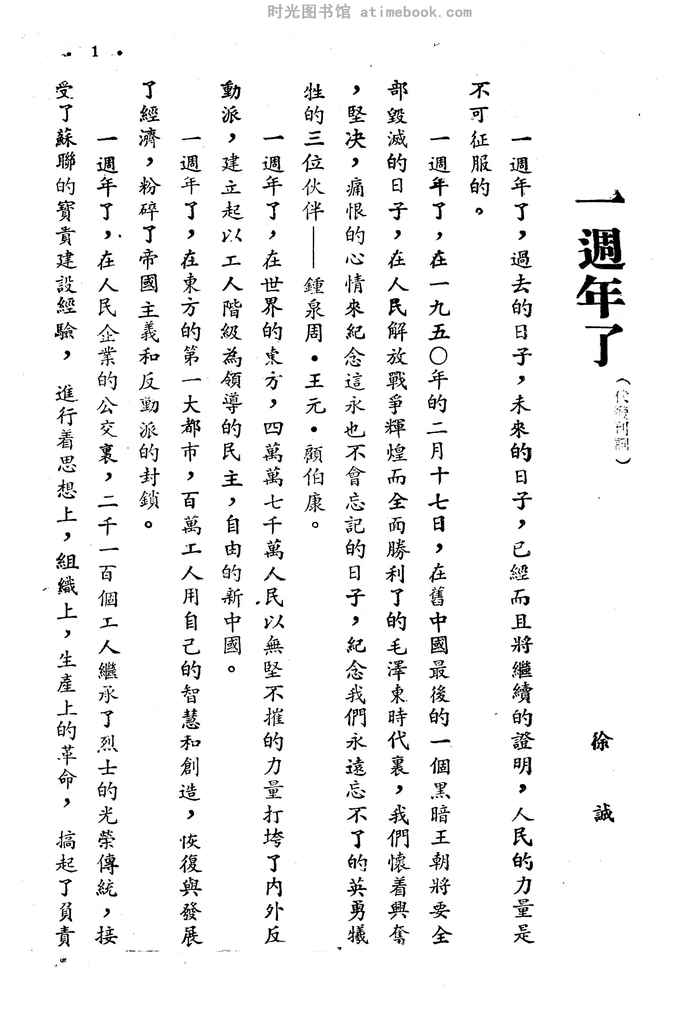 时光图书馆 atimebook.com
• 1 •
一週年了
(代發刊詞)
徐 誠
一週年了，過去的日子，未來的日子，已經而且將繼續的證明，人民的力量是
不可征服的。
一週年了，在一九五〇年的二月十七日，在舊中國最後的一個黑暗王朝將要全
部毀滅的日子，在人民解放戰爭輝煌而全面勝利了的毛澤東時代裏，我們懷着興奮
，堅决，痛恨的心情來紀念這永也不會忘記的日子，紀念我們永遠忘不了的英勇犧
牲的三位伙伴——鍾泉周·王元·顧伯康。
一週年了，在世界的東方，四萬萬七千萬人民以無堅不摧的力量打垮了内外反
動派，建立起以工人階級為領導的民主，自由的新中國。
一週年了，在東方的第一大都市，百萬工人用自己的智慧和創造，恢復與發展
了經濟，粉碎了帝國主義和反動派的封鎖。
一週年了，在人民企業的公交裏，二千一百個工人繼承了烈士的光荣傳統，接
受了蘇聯的寶貴建設經驗，進行着思想上，組織上，生產上的革命，搞起了負責